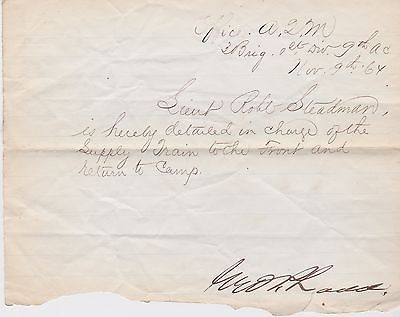 Office A.Q.M
2 Brig. 1st Div 9th A C
Nov. 9th. 64
Lieut Robt Steadman,
is hereby detailed in charge of the
Supply Train to the Front and
return to Camp.